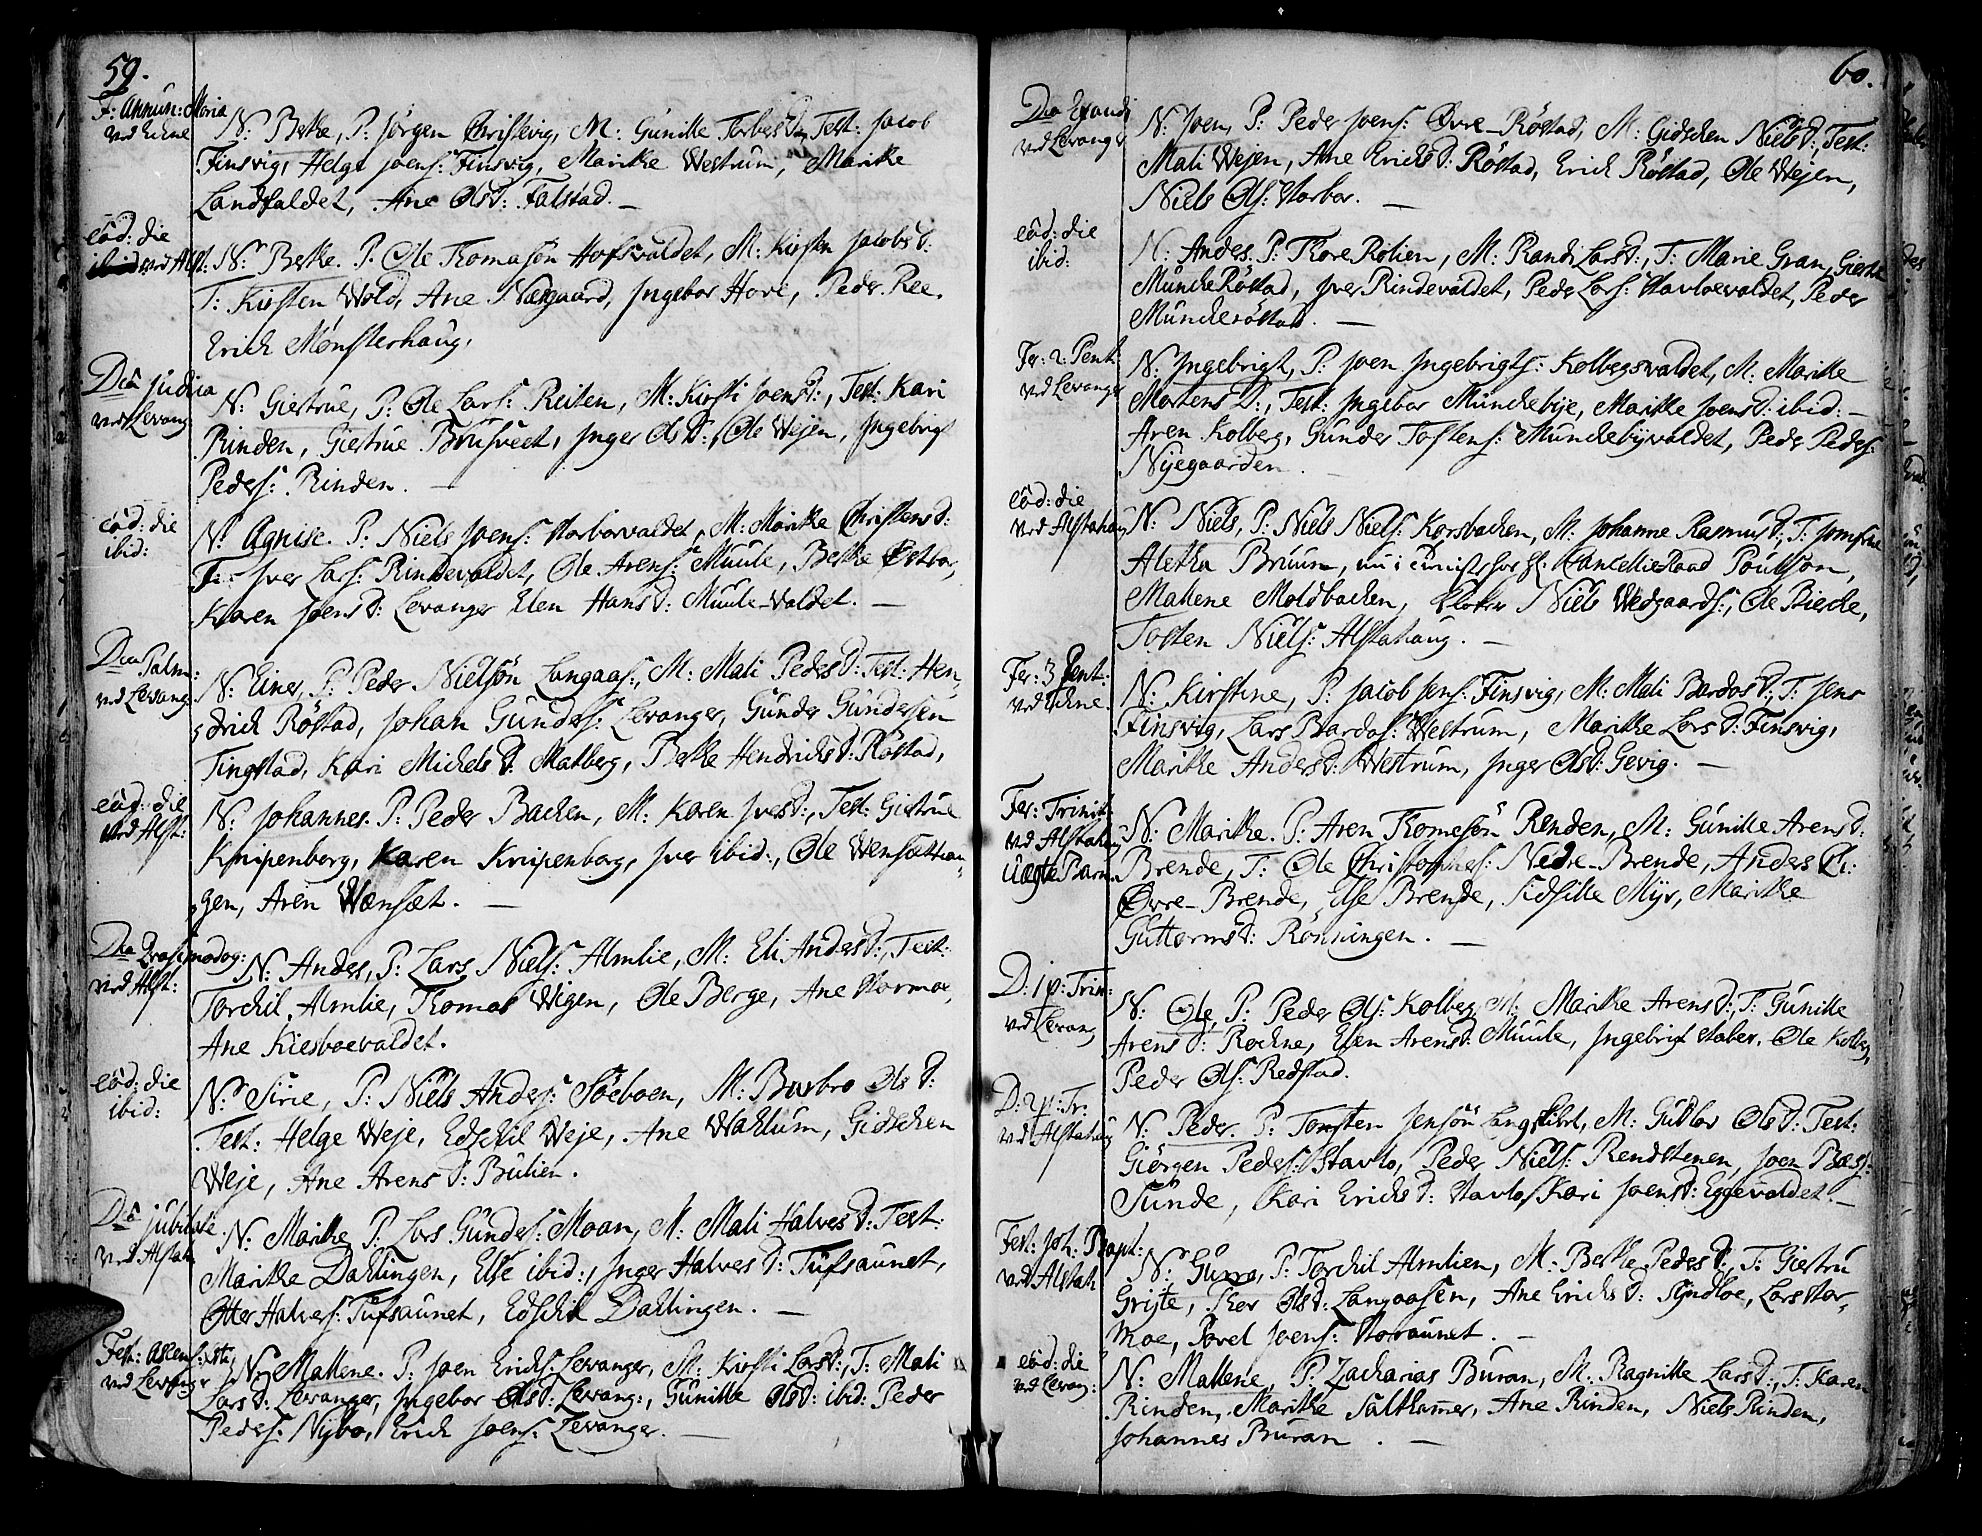 59.
F: Annun: Maria
ved Echne
N: Bethe, P: Jörgen Christevig, M: Gunille Torbersd: Test: Jacob
Finsvig, Helge Joens: Finsvig, Marithe Westrum, Marithe
Landfaldet, Ane Olsd: Falstad. —
eod: die
ved Alst:
N: Bethe. P. Ole Thomasön Hofsvaldet, M: Kirsten Jacobsd:
T: Kirsten Wold, Ane Næsgaard, Ingebor Hove, Peder Ree.
Erich Mønsterhaug.
Dca Judica
ved Levang:
N: Giertrue, P: Ole Lars: Reiten, M: Kirsti Joensd:, Test: Kari
Rinden, Giertrue Brusveet, Inger Olsd:, Ole Wejen, Ingebrigt
Peders: Rinden. —
eod: die
ibid:
N: Agnise. P: Niels Joens: Norborvaldet, M: Marithe Christensd:
T: Iver Lars: Rindevaldet, Ole Arens: Muule, Bethe
Karen Joensd: Levanger Elen Hansd: Muule-valdet. —
Dca Palm:
ved Levang:
N: Einer, P: Peder Nielsön Langaas:, M: Mali Pedersd: Test: Hen-
drich Röstad, Johan Gunders: Levanger, Gunder Gundersen
Tingstad, Kari Michelsd: Matberg, Bethe Hendrichsd: Röstad,
eod: die
ved Alst:
N: Johannes. P: Peder Bachen, M: Karen Iversd:, Test: Giertrue
Knipenberg, Karen Knipenberg, Iver ibid:, Ole Wensæthau-
gen, Aren Wænsæt. —
Dca Qvasimodog:
ved Alst:
N: Anders, P: Lars Niels: Almlie, M: Eli Andersd:, Test:
Torchil Almlie, Thomas Wigen, Ole Berge, Ane Stormoe,
Ane Kiesboevaldet.
eod: die
ibid:
N: Sirie, P: Niels Anders: Söeboen, M: Barbro Olsd:
Test: Helge Weje, Edschil Weje, Ane Wahlum, Gidschen
Weje, Ane Arensd: Bulien.
Dca Jubilate
ved Alstah
N: Marithe P: Lars Gunders: Moan, M: Mali Halvorsd: Test:
Marithe Dahlingen, Else ibid:, Inger Halvorsd: Tufsaunet,
Otter Halvors: Tufsaunet, Edschil Dahlingen. —
Fest: Ascens: Xsti
ved Levanger
N: Mallene. P: Joen Erichs: Levanger, M: Kirsti Larsd:, T: Mali
Larsd: Levanger, Ingebor Olsd: Levang:, Gunille Olsd: ibid: Peder
Peders: Nybo, Erich Joens: Levanger. —
60.
Dca Exaudi
ved Levanger
N: Joen, P: Peder Joens: Øvre-Röstad, M: Gidschen Nielsd:, Test:
Mali Wejen, Ane Erichsd: Röstad, Erich Röstad, Ole Wejen,
Niels Ols: Norbor. —
eod: die
ibid:
N: Anders. P: Thore Rolien, M: Randi Larsd:, T: Marie Gran, Giertru
Muncheröstad, Iver Rindevaldet, Peder Lars: Stavloevaldet, Peder
Muncheröstad. —
Fer: 2: Pent:
ved Levanger
N: Ingebrigt, P: Joen Ingebrigts: Kolbergsvaldet, M: Marithe
Mortensd:, Test: Ingebor Munchebÿe, Marithe Joensd: ibid: —
Aren Kolberg, Gunder Tostens: Munchebÿvaldet, Peder Peders:
Nÿegaarden. —
eod: die
ved Alstahaug
N: Niels, P: Niels Niels: Korsbachen, M: Johanne Rasmusd: T: Jomfrue
Aletha Bruun, nu i Huuset hos Hr: Cancellieraad Poulson,
Mallene Moldbachen, Klokr Niels Wedgaards:, Ole Bieche,
Tosten Niels: Alstahaug. —
Fer: 3 Pent:
ved Echne.
N: Kirstine, P: Jacob Jens: Finsvig, M: Mali Bardosd:, T: Jens
Finsvig, Lars Bardos: Westrum, Marithe Larsd: Finsvig,
Marithe Andersd: Westrum, Inger Olsd: Gevig. —
Fer: Trinit:
ved Alstahaug
uægte Barn
N: Marithe. P: Aren Thomesön Renden, M: Gunille Arensd:
Brende, T: Ole Christophers: Nedre-Brende, Anders Ch:
Øvre-Brende, Else Brende, Sidsille Myr, Marithe
Guttormsd: Rönningen. —
D: 1 p: Trin:
ved Levang
N: Ole, P: Peder Ols: Kolberg, M: Marithe Arensd:, T: Gunille
Arensd: Rochne, Elen Arensd: Muule, Ingebrigt Naber, Ole Kolberg,
Peder Ols: Redstad.
D: 2 p: Tr:
ved Alstahaug
N: Peder. P: Torsten Jensön Langskibet, M: Gudlov Olsd: Test:
Giörgen Peders: Stavlo, Peder Niels: Rendstenen, Joen Bærs:
Sunde, Kari Erichsd: Stavlo, Kari Joensd: Eggevaldet. —
Fest: Joh: Bapt:
ved Alstah
N: Guro, P: Torchil Almlien, M: Bethe Pedersd:, T: Giertru
Grijte, Olsd: Langaasen, Ane Erichsd: Sÿndloe, Lars Stor-
moe, Povel Joens: Noraunet. —
eod: die
ved Levang:
N: Mallene, P: Zacharias Buran, M: Ragnille Larsd:, T: Karen
Rinden, Marithe Salthamer, Ane Rinden, Niels Rinden,
Johannes Buran. —